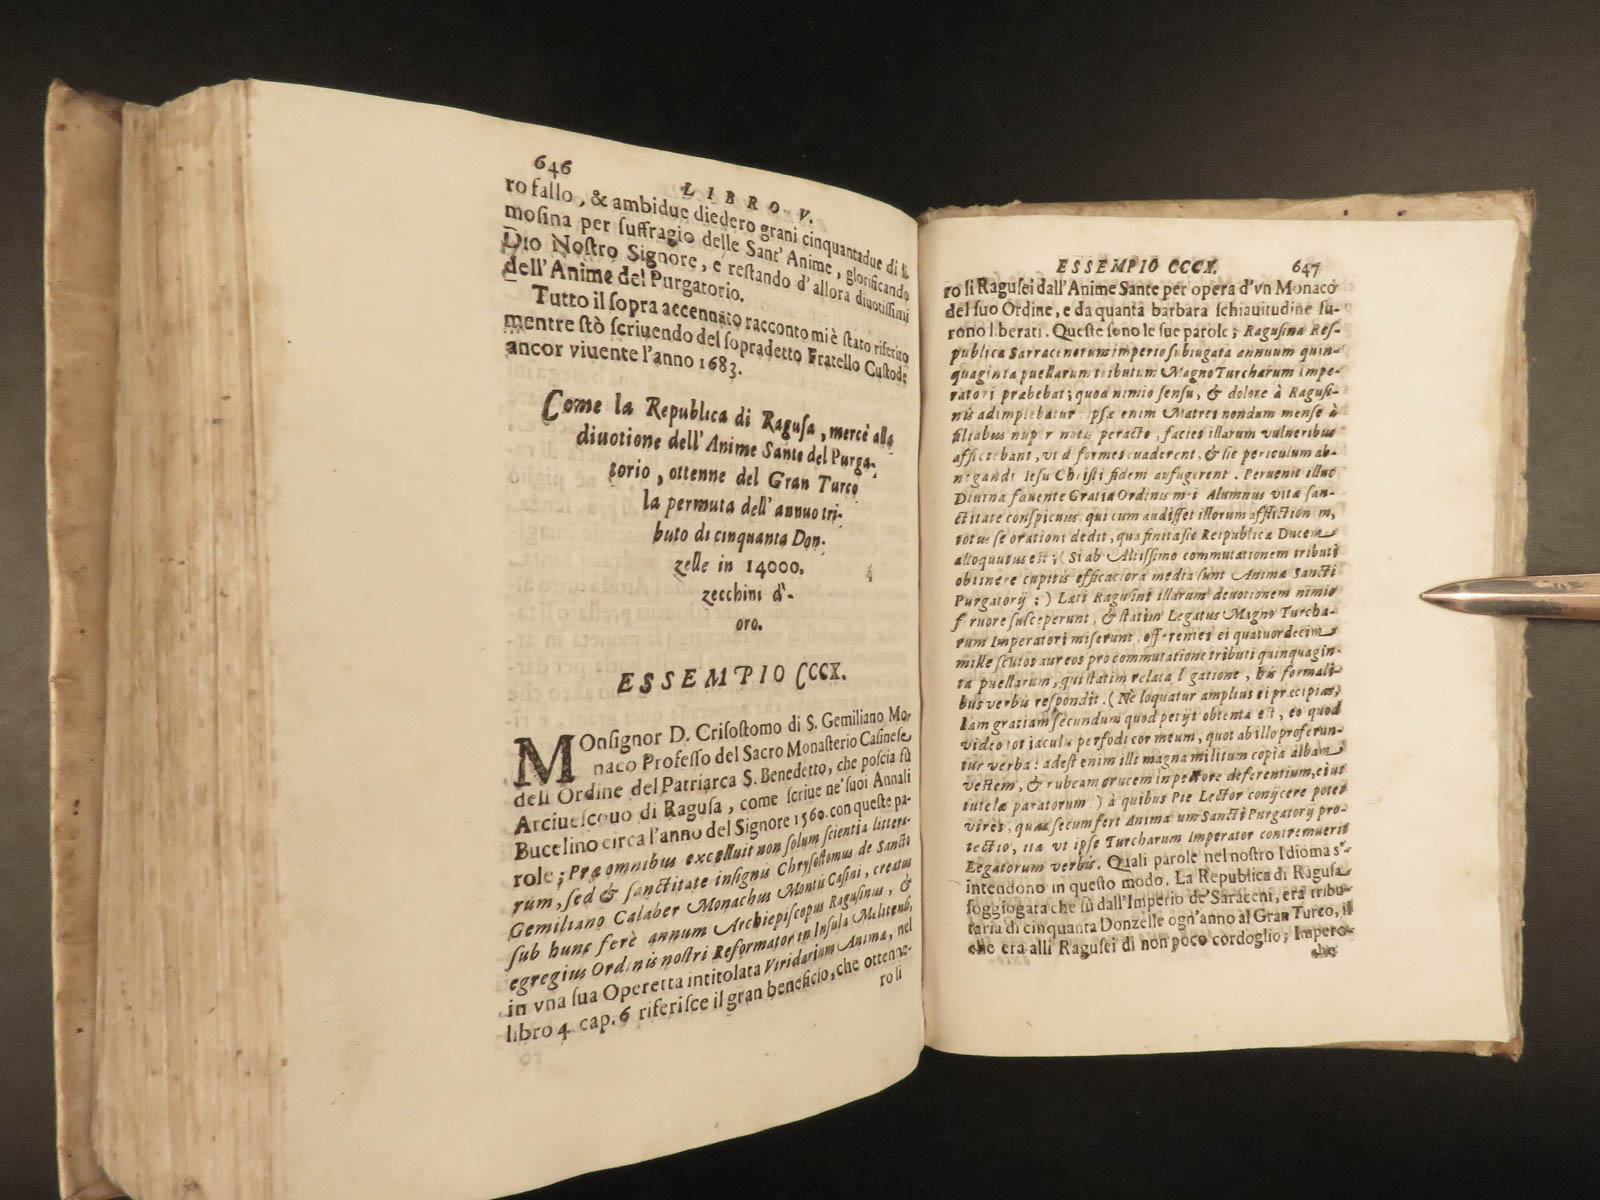 646
LIBRO V.
ro fallo, & ambidue diedero grani cinquantadue di li-
mosina per suffragio delle Sant' Anime, glorificando
Dio Nostro Signore, e restando d'allora diuotissimi
dell'Anime del Purgatorio.
Tutto il sopra accennato racconto mi è stato riferito
mentre stò scriuendo del sopradetto Fratello Custode
ancor viuente l'anno 1683.
Come la Republica di Ragusa, mercè alla
diuotione dell' Anime Sante del Purga-
torio, ottenne del Gran Turco
la permuta dell' annuo tri-
buto di cinquanta Don-
zelle in 14000.
zecchini d'-
oro.
ESSEMPIO CCCX.
MOnsignor D. Crisostomo di S. Gemiliano Mo-
naco Professo del Sacro Monasterio Casinese
dell Ordine del Patriarca S. Benedetto, che poscia fù
Arciuescouo di Ragusa, come scriue ne' suoi Annali
Bucelino circa l'anno del Signore 1560. con queste pa-
role; Præ omnibus excelluit non solum scientia littera-
rum, sed & sanctitate insignis Chrysostomus de Sancto
Gemiliano Calaber Monachus Montis Casini, creatus
sub hunc ferè annum Archiepiscopus Ragusinus, &
egregius Ordinis nostri Reformator in Insula Melitensi,
in vna sua Operetta intitolata Viridarium Animæ, nel
libro 4. cap. 6 riferisce il gran beneficio, che ottenne-
ro li
ESSEMPIO CCCX. 647
ro li Ragusei dall'Anime Sante per opera d'vn Monaco
del suo Ordine, e da quanta barbara schiauitudine fu-
rono liberati. Queste sono le sue parole; Ragusina Res-
publica Sarracenorum imperio subiugata annuum quin-
quaginta puellarum tributum Magno Turcharum Impe-
ratori præbebat; quod nimio sensu, & dolore à Ragusi-
nis adimplebatur ipsæ enim Matres nondum mense à
filiabus nuper natis peracto, facies illarum vulneribus
afficiebant, vt deformes euaderent, & sic periculum ab-
negandi Iesu Christi fidem aufugerent. Peruenit illuc
Diuina fauente Gratia Ordinis mei Alumnus vitæ san-
ctitate conspicuus, qui cum audisset illorum afflictionem,
totus se orationi dedit, qua finita sic Reipublicæ Ducem
alloquutus est; (Si ab Altissimo commutationem tributi
obtinere cupitis efficaciora media sunt Animæ Sancti
Purgatorij;) Læti Ragusini illarum deuotionem nimio
feruore susceperunt, & statim Legatus Magno Turcha-
rum Imperatori miserunt, offerentes ei quatuordecim
mille scutos aureos pro commutatione tributi quinquagin-
ta puellarum, qui statim relata legatione, his formali-
bus verbis respondit. (Ne loquatur amplius ei præcipias,
Iam gratiam secundum quod petijt obtenta est, eo quod
video tot iacula perfodi cor meum, quot ab illo proferun-
tur verba: adest enim illi magna militum copia albam
vestem, & rubeam crucem in pectore deferentium, eius
tutelæ paratorum) à quibus Pie Lector conijcere potes
vires, quas secum fert Animarum Sancti Purgatorij pro-
tectio, ita vt ipse Turcharum Imperator contremuerit
Legatorum verbis. Quali parole nel nostro Idioma s'-
intendono in questo modo. La Republica di Ragusa
soggiogata che fù dall'Imperio de' Saraceni, era tribu-
taria di cinquanta Donzelle ogn'anno al Gran Turco, il
che era alli Ragusei di non poco cordoglio; Impero-
che